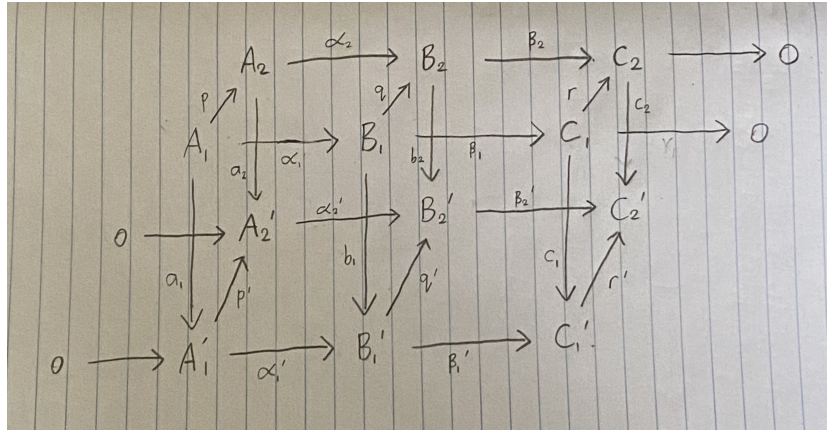 α₂ β₂
A₂ B₂ C₂ 0
p q r c₂
A₁ α₁ B₁ β₁ C₁ γ₁ 0
a₂ b₂
0 A₂' α₂' B₂' β₂' C₂'
a₁ p' b₁ q' c₁ r'
0 A₁' α₁' B₁' β₁' C₁'.